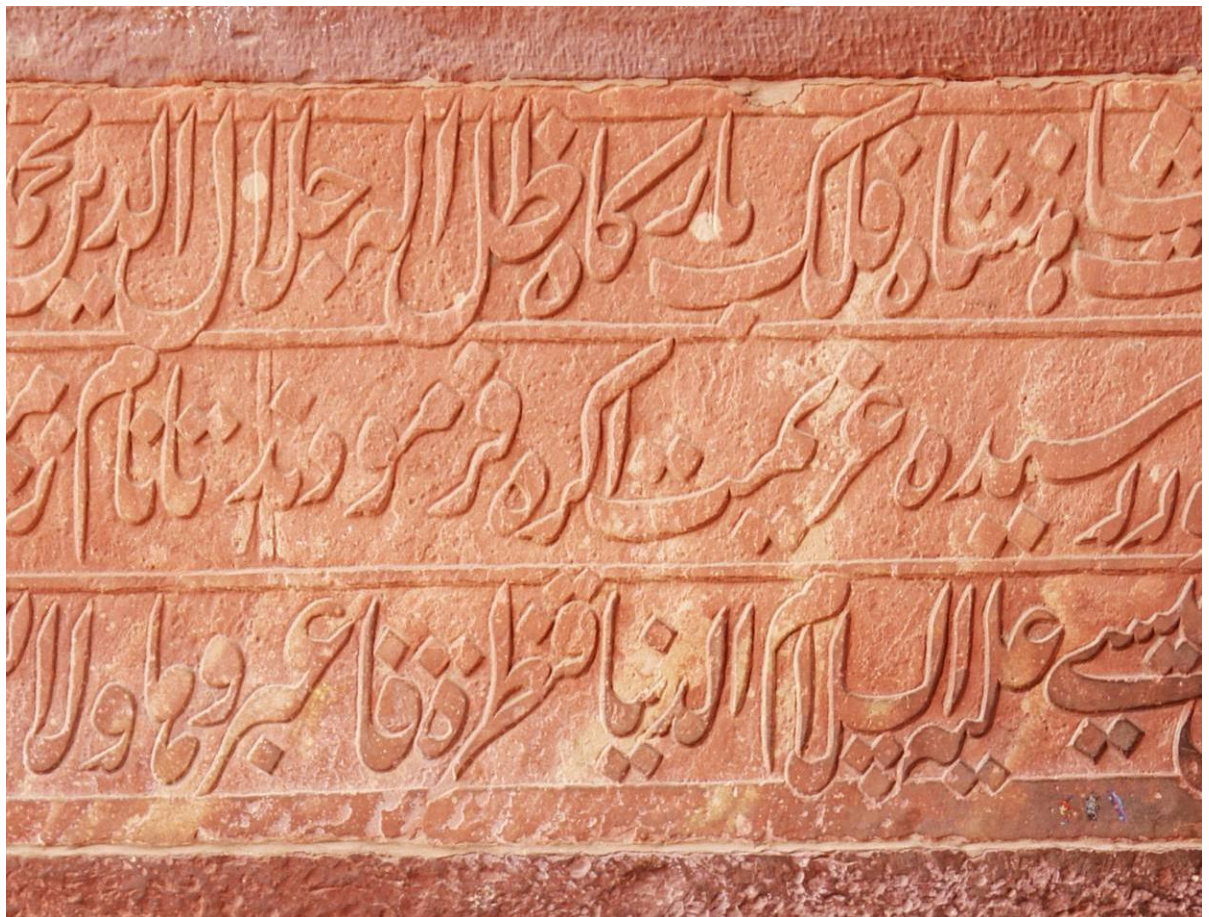 شاهنشاه فلک بارکاه ظل اله جلال الدین
سیده عزیمت اکره فرمودند تا نام
علیه السلام الدنیا قنطرة فاعبروها ولا